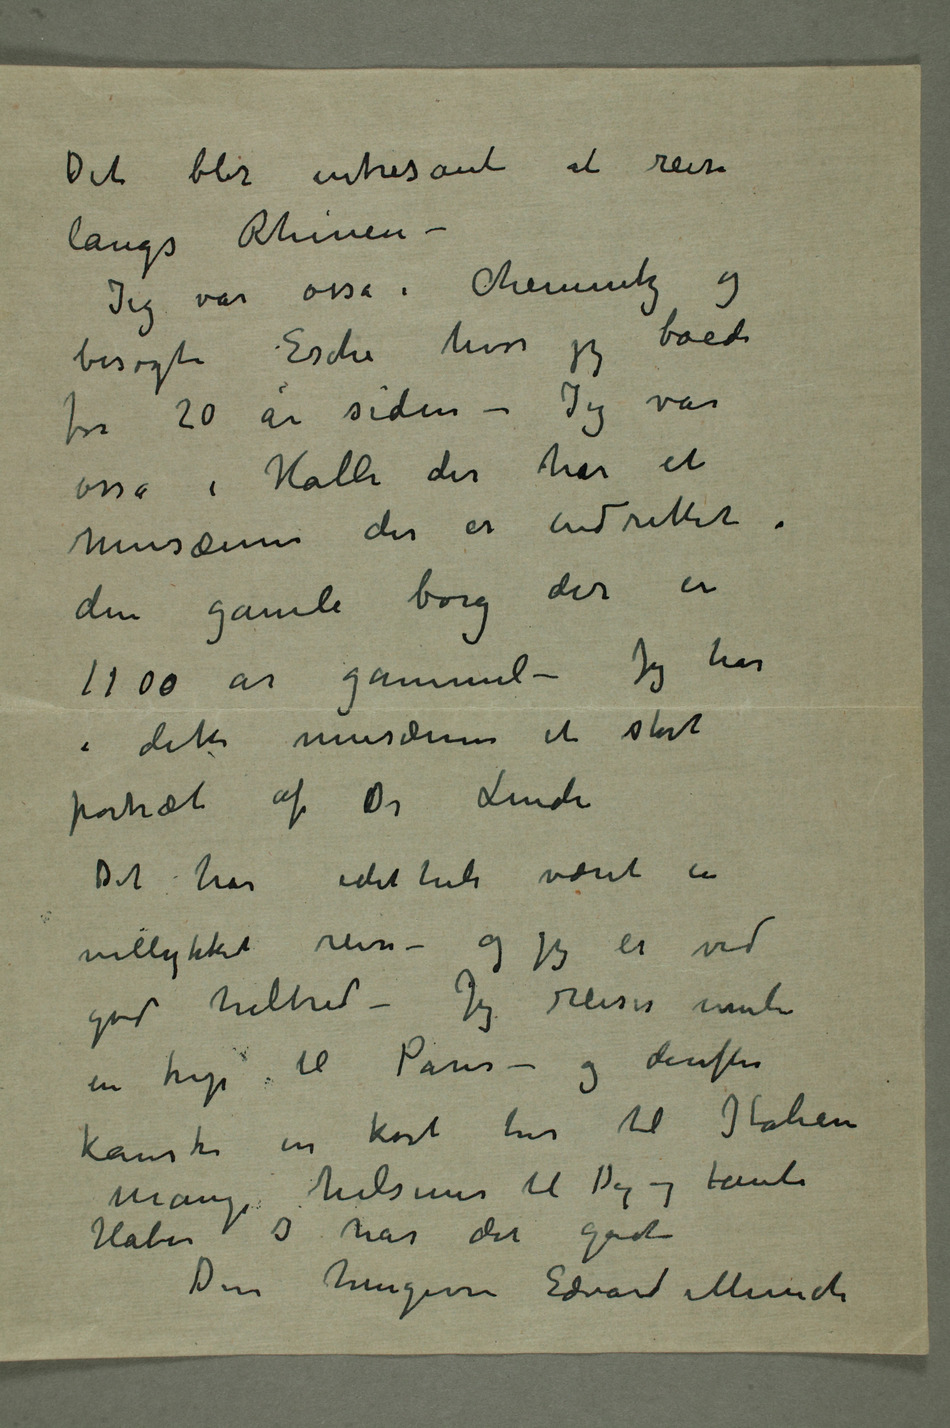 Det blir intresant at reise
langs Rhinen –
Jeg var ossa i Chemnitz og
besøgte Esche hvor jeg boede
for 20 år siden – Jeg var
ossa i Halle der har et
musæum der er indrettet i
den gamle borg der er
1100 ar gammel – Jeg har
i dette musæum et stort
portræt af Dr Linde
Det har idethele været en
vellykket reise – og jeg er ved
god helbred – Jeg reiser
en trip til Paris – og derefter
kanske en kort tur til Italien
Mange hilsener til Dig og tante
Haber I har det godt
Din hengivne Edvard Munch